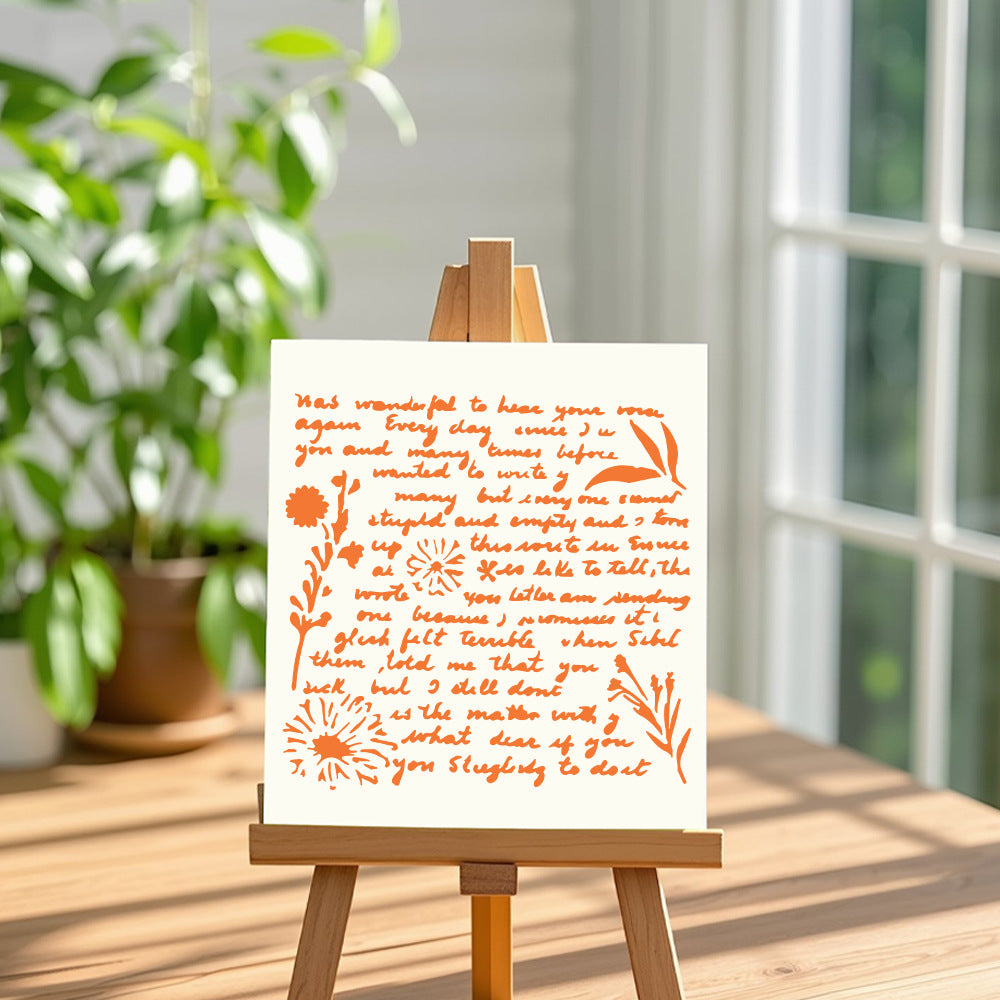 was wonderful to hear your voice
again Every day since I
you and many times before
wanted to write y
many but everyone seemed
stupid and empty and I tore
up this write in
as like to tell, the
wrote you letter am sending
one because I
glish felt terrible when Sibel
them, told me that you
sick but I still dont
is the matter with y
what dear if you
you to do it